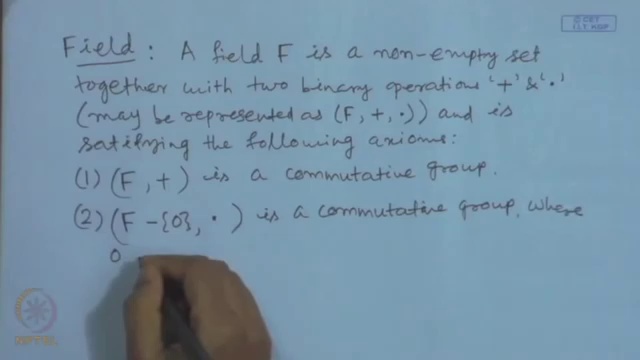 © CET
I.I.T. KGP
Field : A field F is a non-empty set
together with two binary operations '+' & '·'
(may be represented as (F, +, ·)) and is
satisfying the following axioms:
(1) (F, +) is a commutative group.
(2) (F - {0}, ·) is a commutative group, where
0
NPTEL